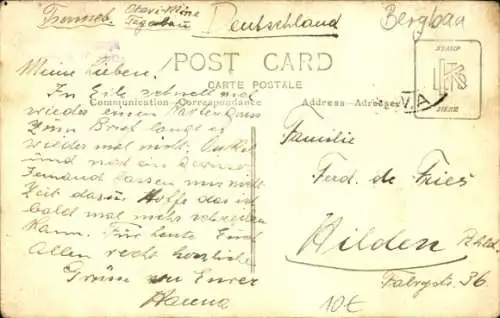 Tsumeb. Otavi-Mine
Tagebau
Deutschland
Bergbau
POST CARD
CARTE POSTALE
STAMP
HERE
Communication Correspondance
Address Adresse
V.A
Meine Lieben.
In Eile schnell mal
wieder einen Kartengruss
Zum Brief langt es
wieder mal nicht. Onkel
und noch ein
Jemand lassen mir nicht
Zeit dazu. Hoffe das ich
bald mal mehr schreiben
kann. Für heute Euch
Allen recht herzliche
Grüsse von Eurer
Hanna
Familie
Ferd. de Fries
Hilden Rhld.
Fabrystr. 36
10€